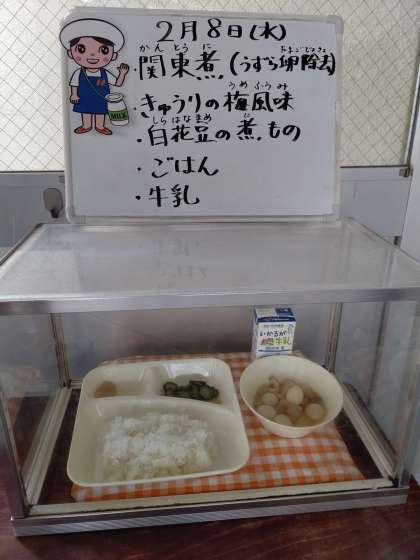 2月8日(水)
かんとうに たまごじょきょ
・関東煮(うずら卵除去)
うめふうみ
・きゅうりの梅風味
しらはなまめ に
・白花豆の煮もの
・ごはん
・牛乳
MILK
いかるが
牛乳